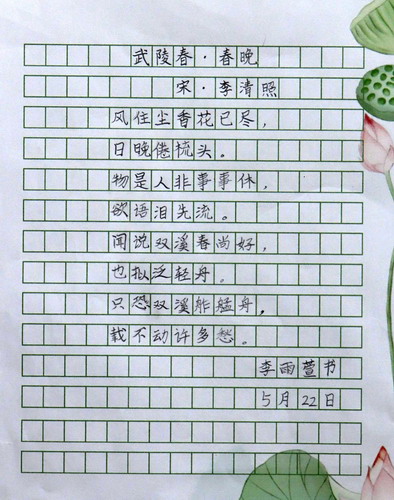 武陵春·春晚
宋·李清照
风住尘香花已尽，
日晚倦梳头。
物是人非事事休，
欲语泪先流。
闻说双溪春尚好，
也拟泛轻舟。
只恐双溪舴艋舟，
载不动许多愁。
李雨萱书
5月22日